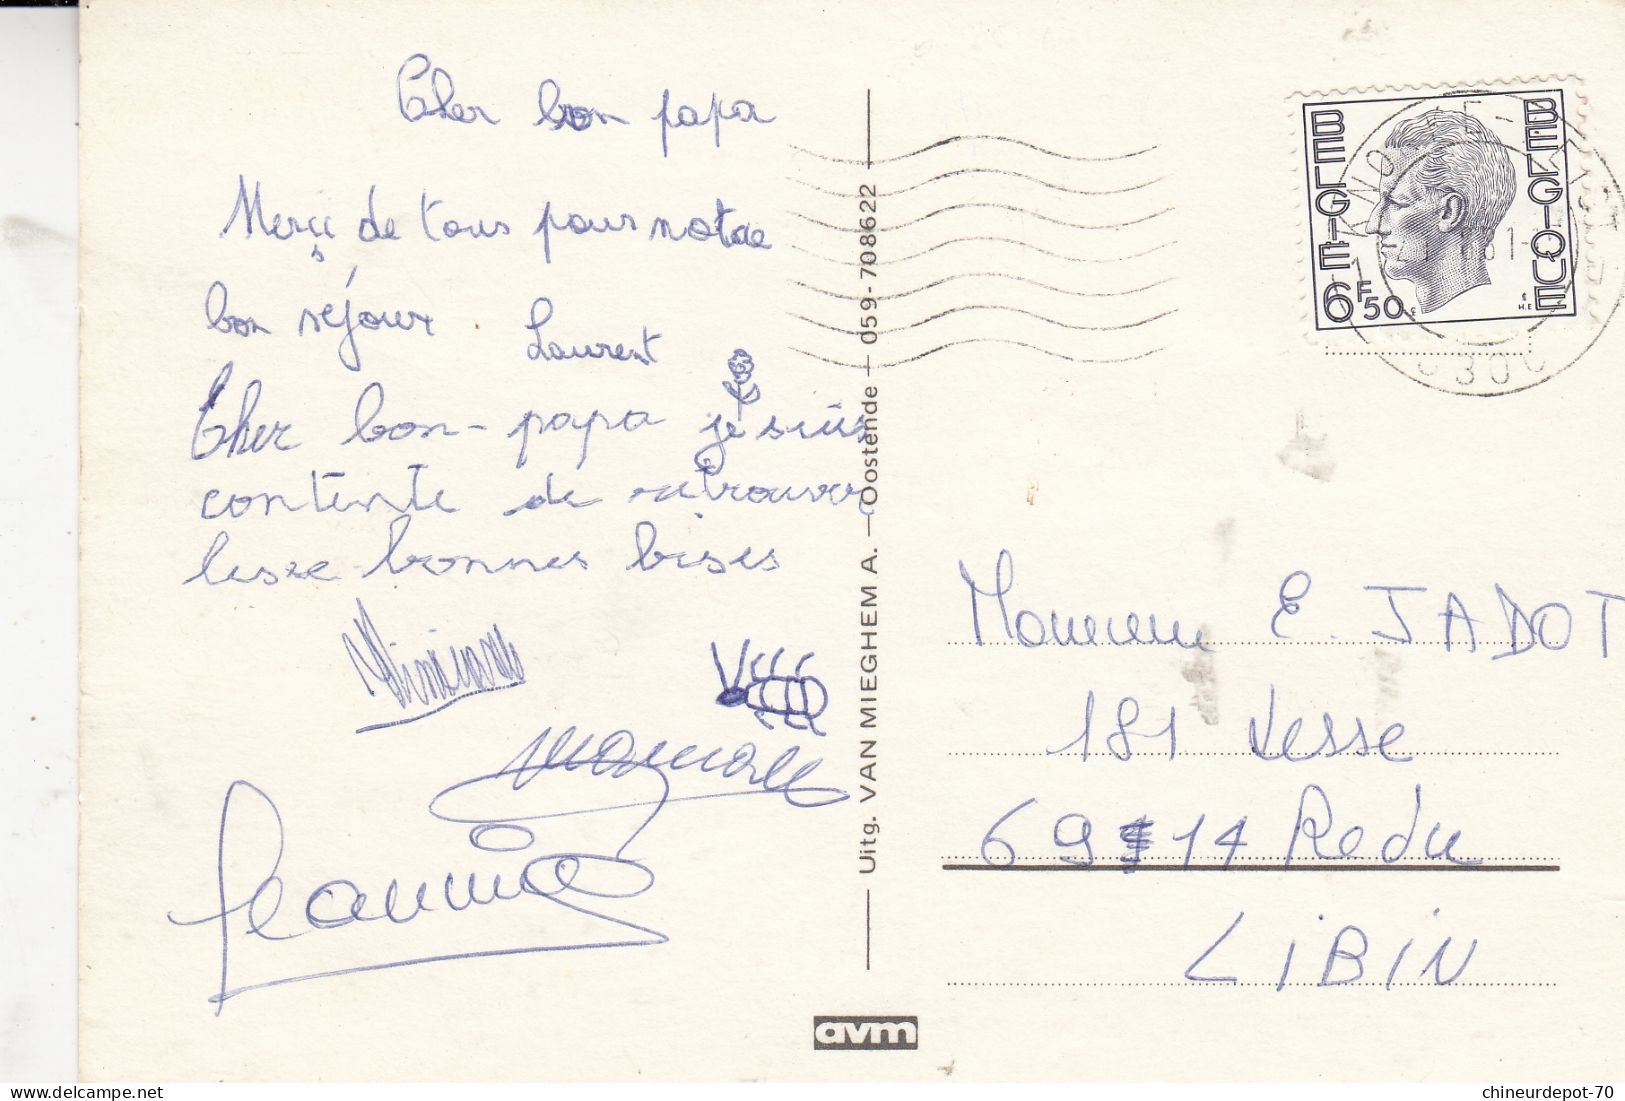 Cher bon papa
Merçi de tous pour notre
bon séjour
Laurent
Cher bon-papa je suis
contente de retrouver
lesse bonnes bises
Jeannine
Uitg. VAN MIEGHEM A. — Oostende — 059-708622
avm
BELGIE
BELGIQUE
6F50
Monsieur E. JADOT
181 Lesse
69 14 Redu
LiBiN
chineurdepot-70